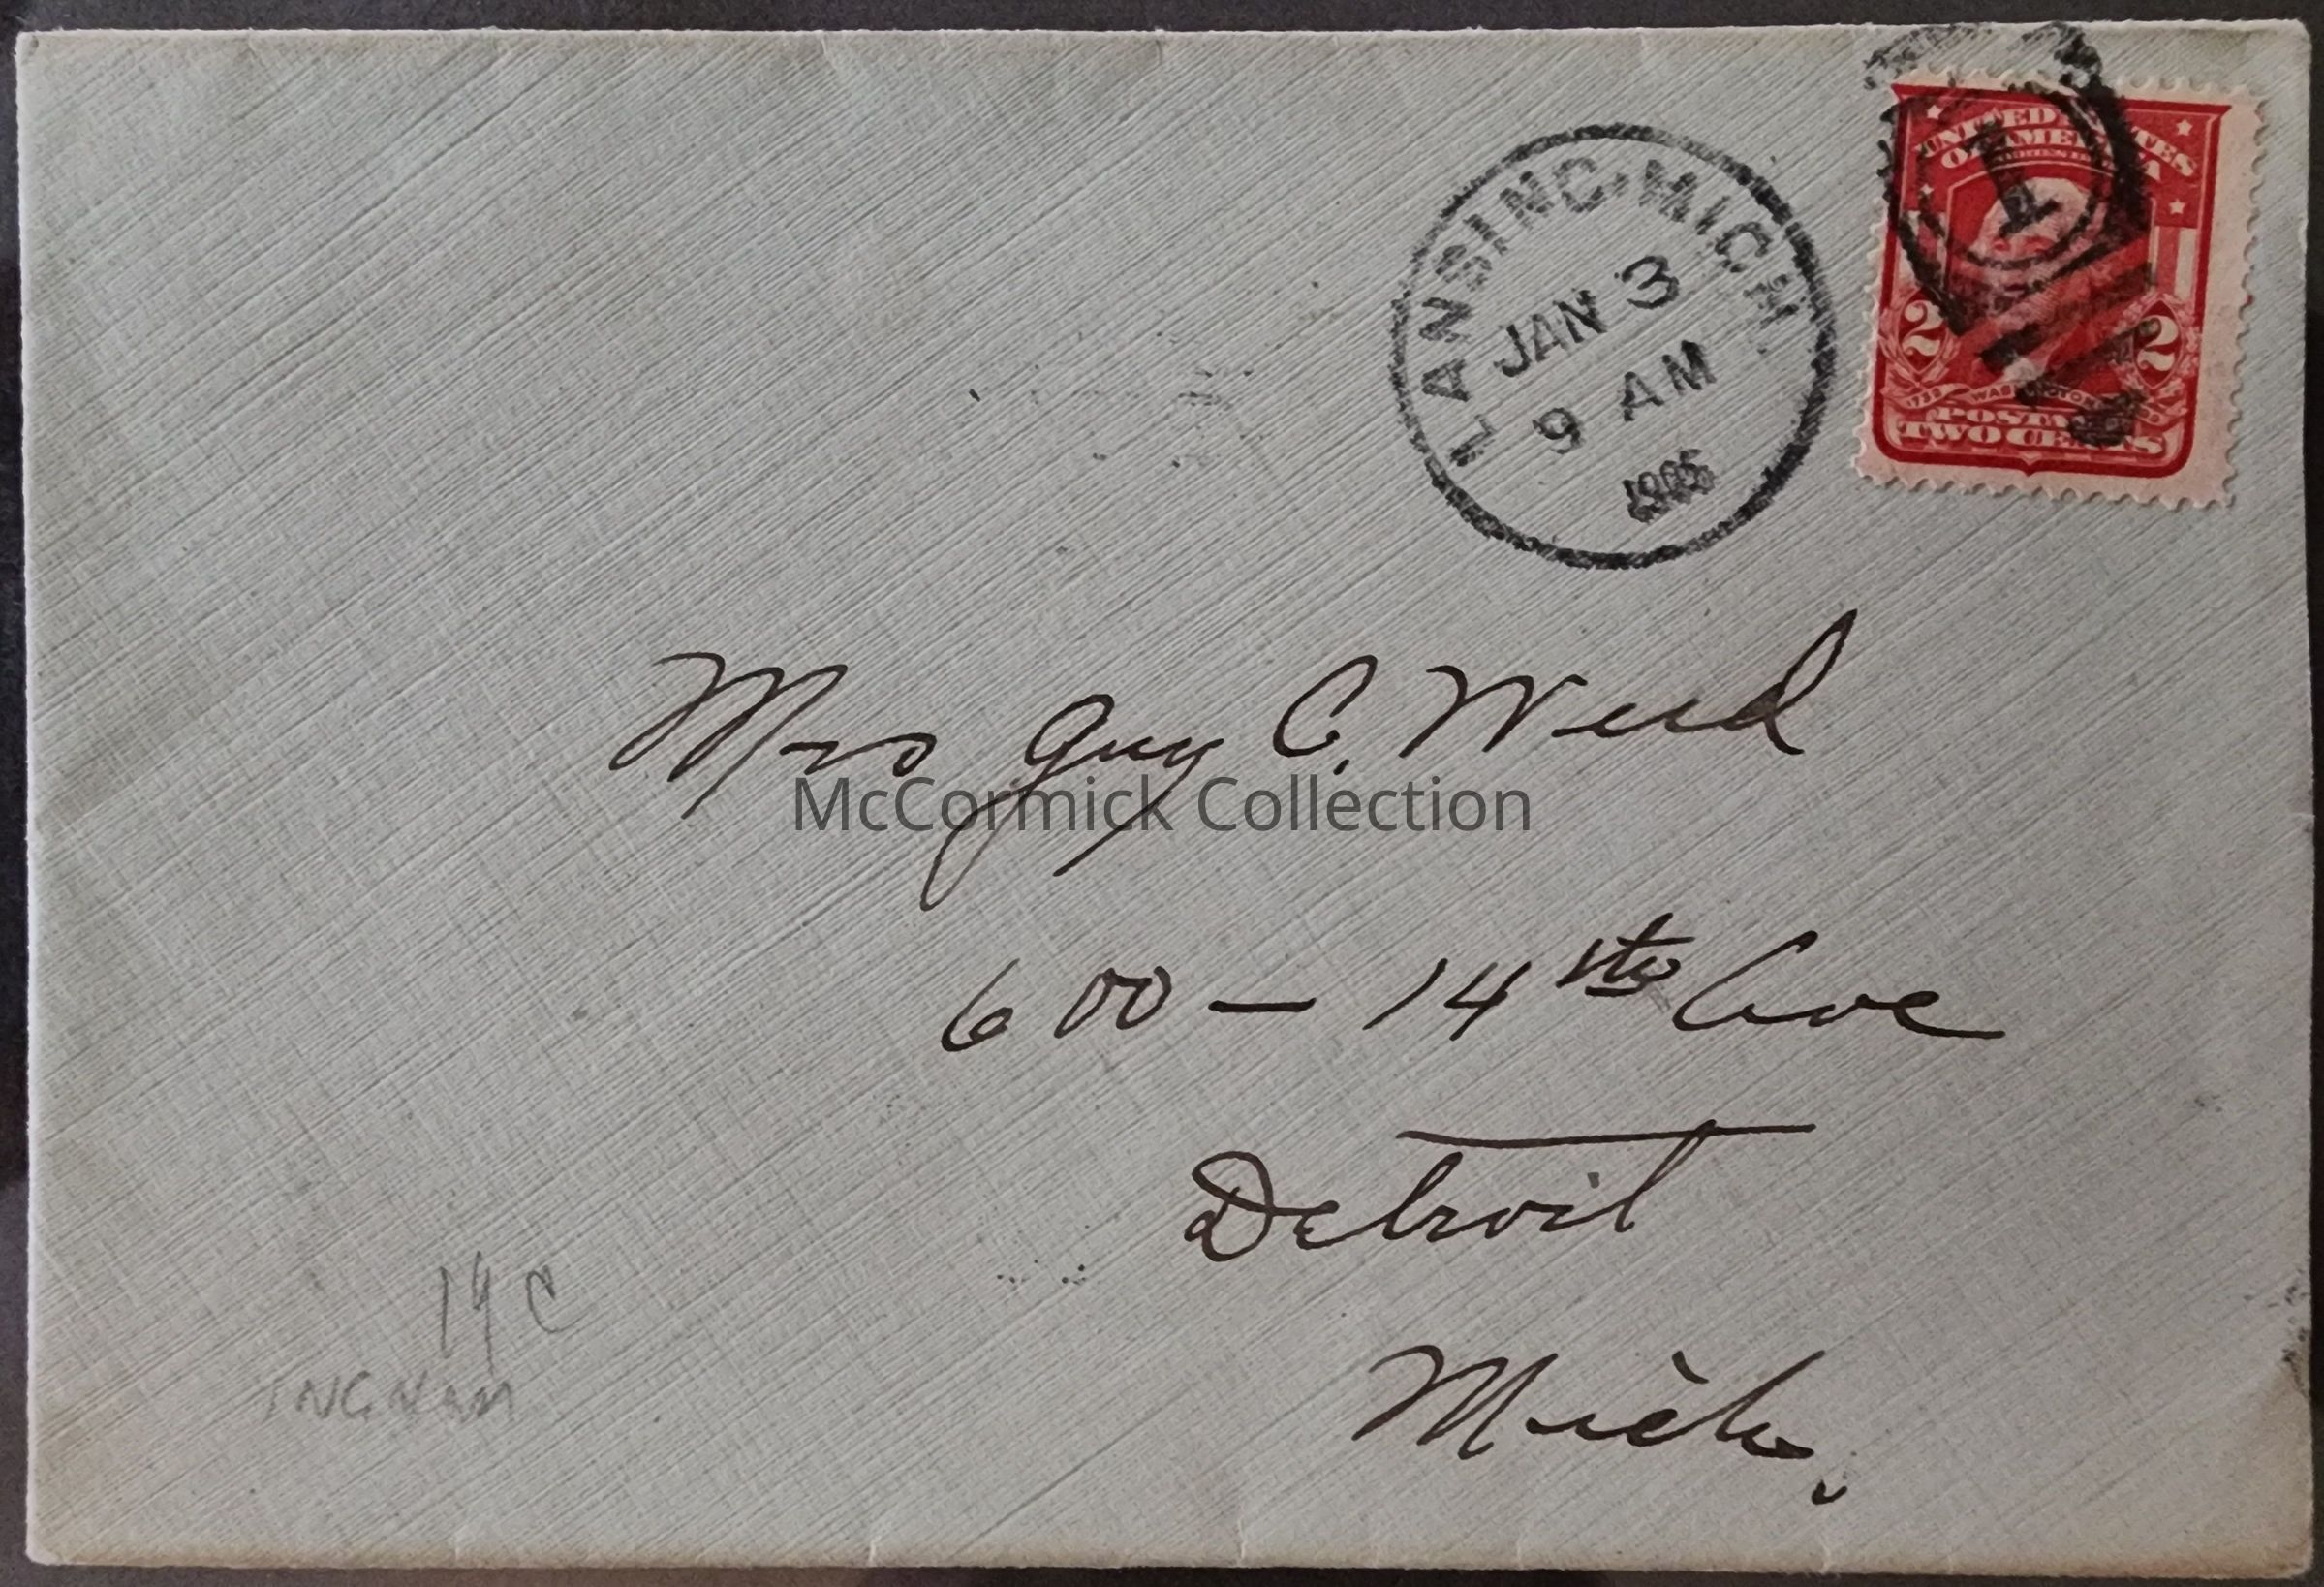 LANSING MICH
JAN 3
9 AM
UNITED STATES
OF AMERICA
1
2 2
WASHINGTON
POSTAGE
TWO CENTS
Mrs Guy C. Weed
McCormick Collection
600 — 14th Ave
Detroit
Mich.
INGHAM